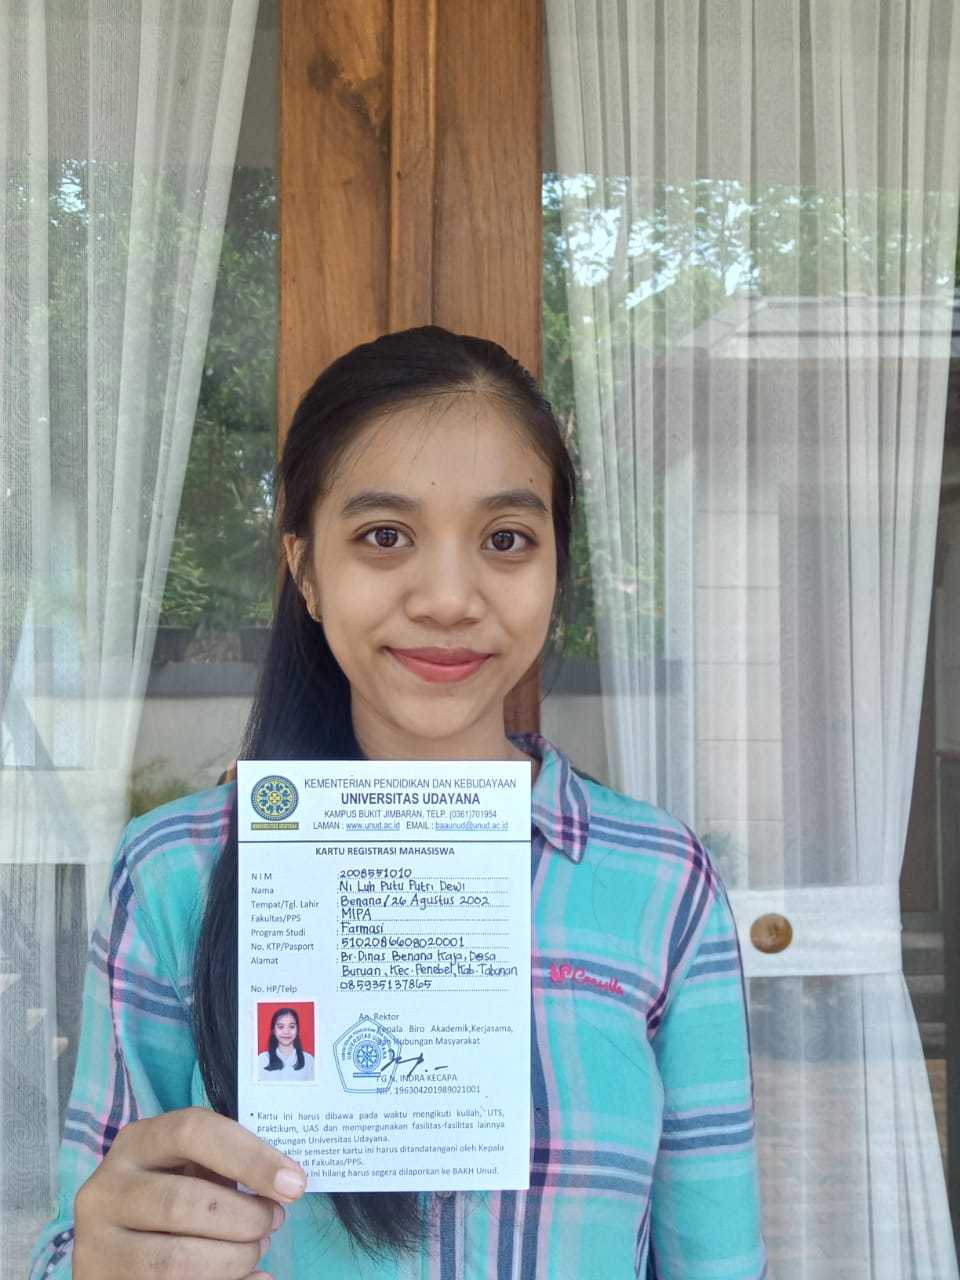 KEMENTERIAN PENDIDIKAN DAN KEBUDAYAAN
UNIVERSITAS UDAYANA
KAMPUS BUKIT JIMBARAN, TELP. (0361)701954
LAMAN : www.unud.ac.id EMAIL : baaunud@unud.ac.id
UNIVERSITAS UDAYANA
KARTU REGISTRASI MAHASISWA
N I M : 2008551010
Nama : Ni Luh Putu Putri Dewi
Tempat/Tgl. Lahir : Benana/26 Agustus 2002
Fakultas/PPS : MIPA
Program Studi : Farmasi
No. KTP/Pasport : 5102086608020001
Alamat : Br. Dinas Benana Kaja, Desa
Buruan, Kec. Penebel, Kab. Tabanan
No. HP/Telp : 085935137865
An. Rektor
Kepala Biro Akademik,Kerjasama,
dan Hubungan Masyarakat
UNIVERSITAS UDAYANA
I G N. INDRA KECAPA
NIP. 196304201989021001
* Kartu ini harus dibawa pada waktu mengikuti kuliah, UTS,
praktikum, UAS dan mempergunakan fasilitas-fasilitas lainnya
dilingkungan Universitas Udayana.
akhir semester kartu ini harus ditandatangani oleh Kepala
di Fakultas/PPS.
ini hilang harus segera dilaporkan ke BAKH Unud.